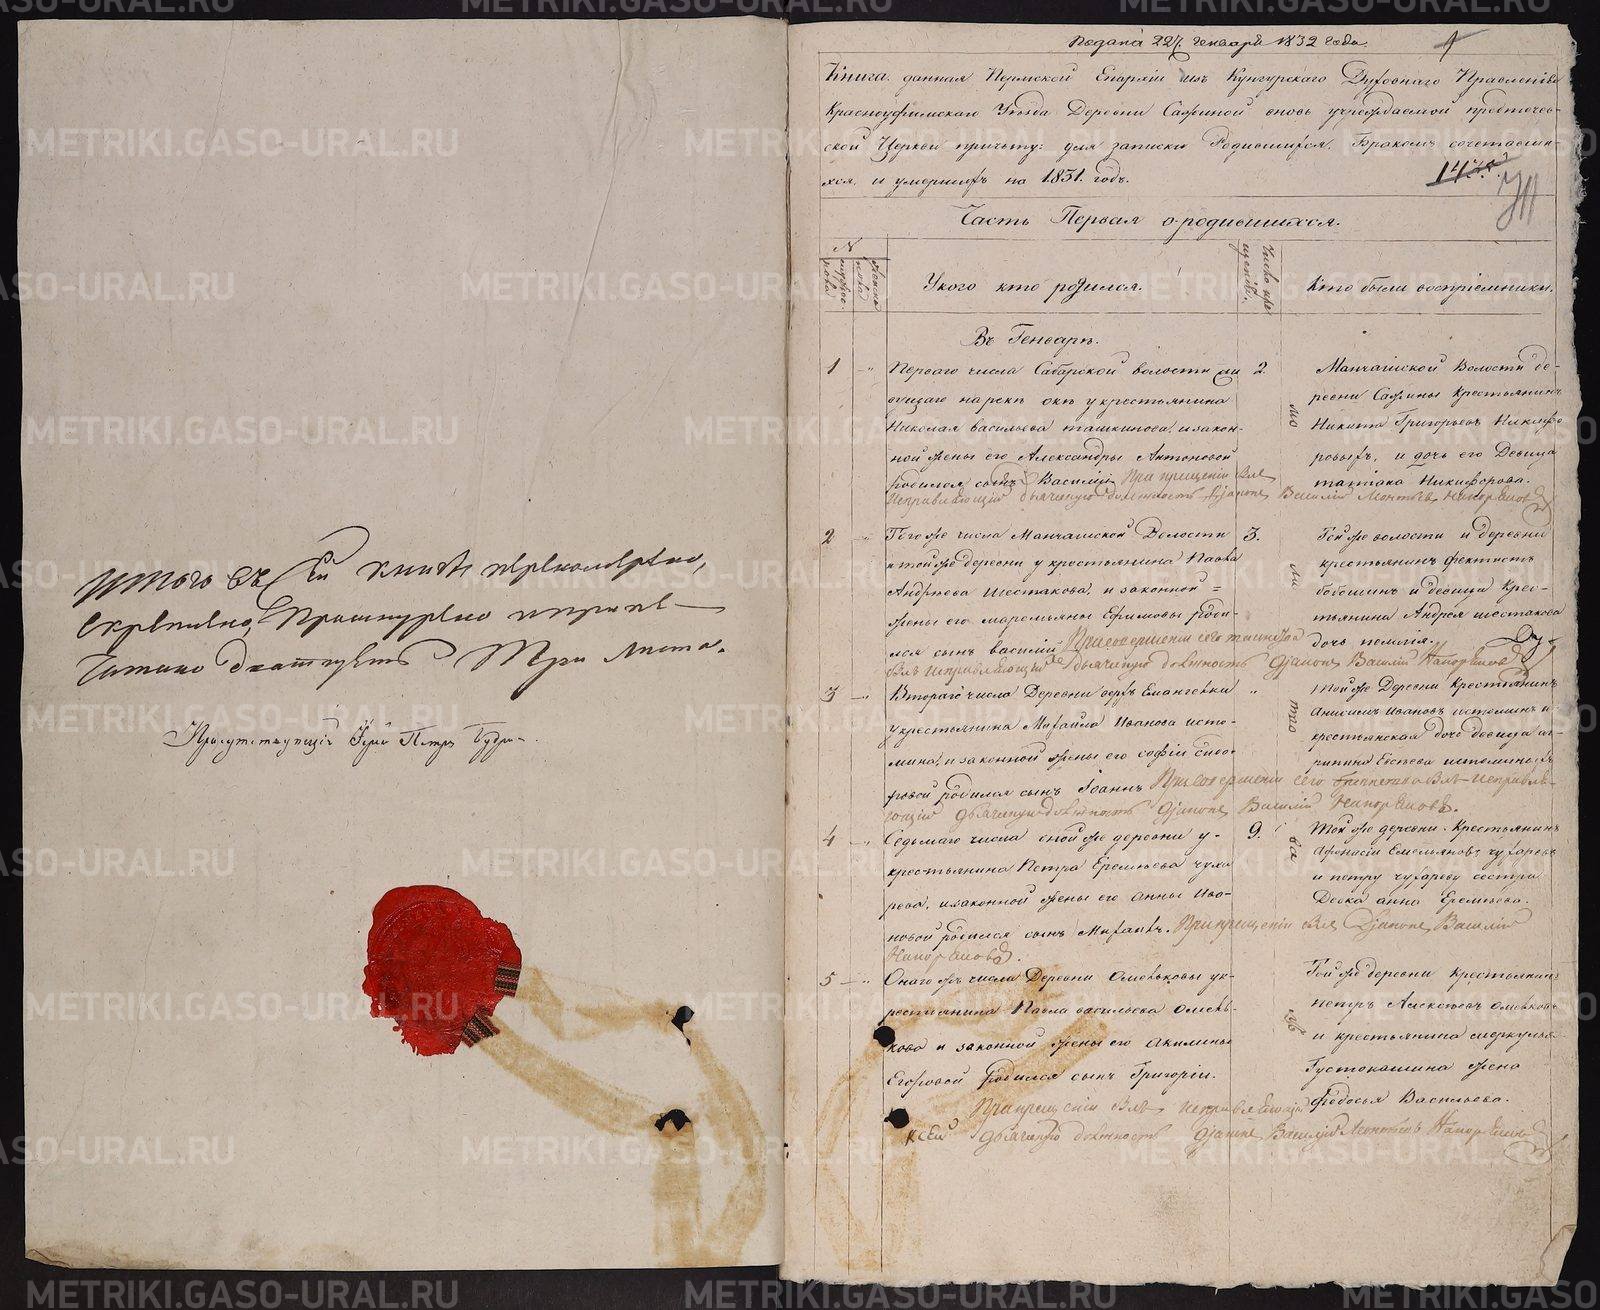 Итого въ сей книгѣ перенумерено,
скрѣплено, прошнуровано и припе-
чатано двадцать три листа.
Присутствующій Іерей Петръ
Подана 22. генваря 1832 года.
1
Книга данная Пермской Епархіи изъ Кунгурскаго Духовнаго Правленія
Красноуфимскаго Уѣзда Деревни Сажиной вновь учреждаемой предтечев-
ской Церкви причту: для записки Родившихся, Бракомъ сочетавши-
хся, и умершихъ на 1831. годъ.
Часть Первая о родившихся.
№
У кого кто родился.
Число кре
щенія.
Кто были воспріемники.
Въ Генварѣ.
1
Перваго числа Сабарской волости
нарекѣ окѣ у крестьянина
Николая Васильева ташкинова, и закон-
ной жены его Александры Антоновой
родился сынъ Василій При крещеніи былъ
Исправляющій дьяческую должность Діаконъ Василій Леонтьевъ Напорѣшовъ
2.
Манчажской Волости де-
ревни Сажины крестьянинъ
Никита Григорьевъ Никифо
ровыхъ, и дочь его Девица
татіана Никифорова.
2
Того же числа Манчажской Волости
и той же деревни у крестьянина Павла
Андрѣева Шестакова, и законной
жены его маремьяны Ефимовы роди-
лся сынъ василій При совершеніи сего таинства
былъ Исправляющій дьяческую должность Діаконъ Василій Напорѣшовъ
3.
Той же волости и деревни
крестьянинъ феоктистъ
бобошинъ и девица Крес-
тьянина Андрея шестакова
дочь пелагія.
3
Втораго числа Деревни верхъ Емангевки
у крестьянина Михайла Иванова исто-
мина, и законной жены его софіи сидо-
ровой родился сынъ Іоаннъ При совершеніи сего былъ Исправля-
ющій дьяческую должность Діаконъ Василій Напорѣшовъ.
Той же Деревни Крестьянинъ
Анисимъ Ивановъ истоминъ и
крестьянская дочь девица аг-
рипина Евсѣева истоминыхъ
4
Седьмаго числа сной же деревни у
крестьянина Петра Еремѣева чуха
рева, и законной жены его Анны Ива-
новой родился сынъ Михаилъ. При крещеніи былъ Діаконъ Василій
Напорѣшовъ.
9.
Той же деревни Крестьянинъ
Афонасій Емельяновъ чухаревъ
и петру чухареву сестра
Девка анна Еремѣева.
5
Онаго жъ числа Деревни Омельковы у к-
рестьянина Павла васильева Омель-
кова и законной жены его Акилины
Егоровой родился сынъ Григорій.
При крещеніи былъ исправляющій
дьяческую должность Діаконъ Василій Леонтьевъ Напорѣшовъ
Той же деревни Крестьянинъ
петръ Алексѣевъ омельковъ
и крестьянина меркулья
Густокашина жена
Федосья Васильева.
METRIKI.GASO-URAL.RU